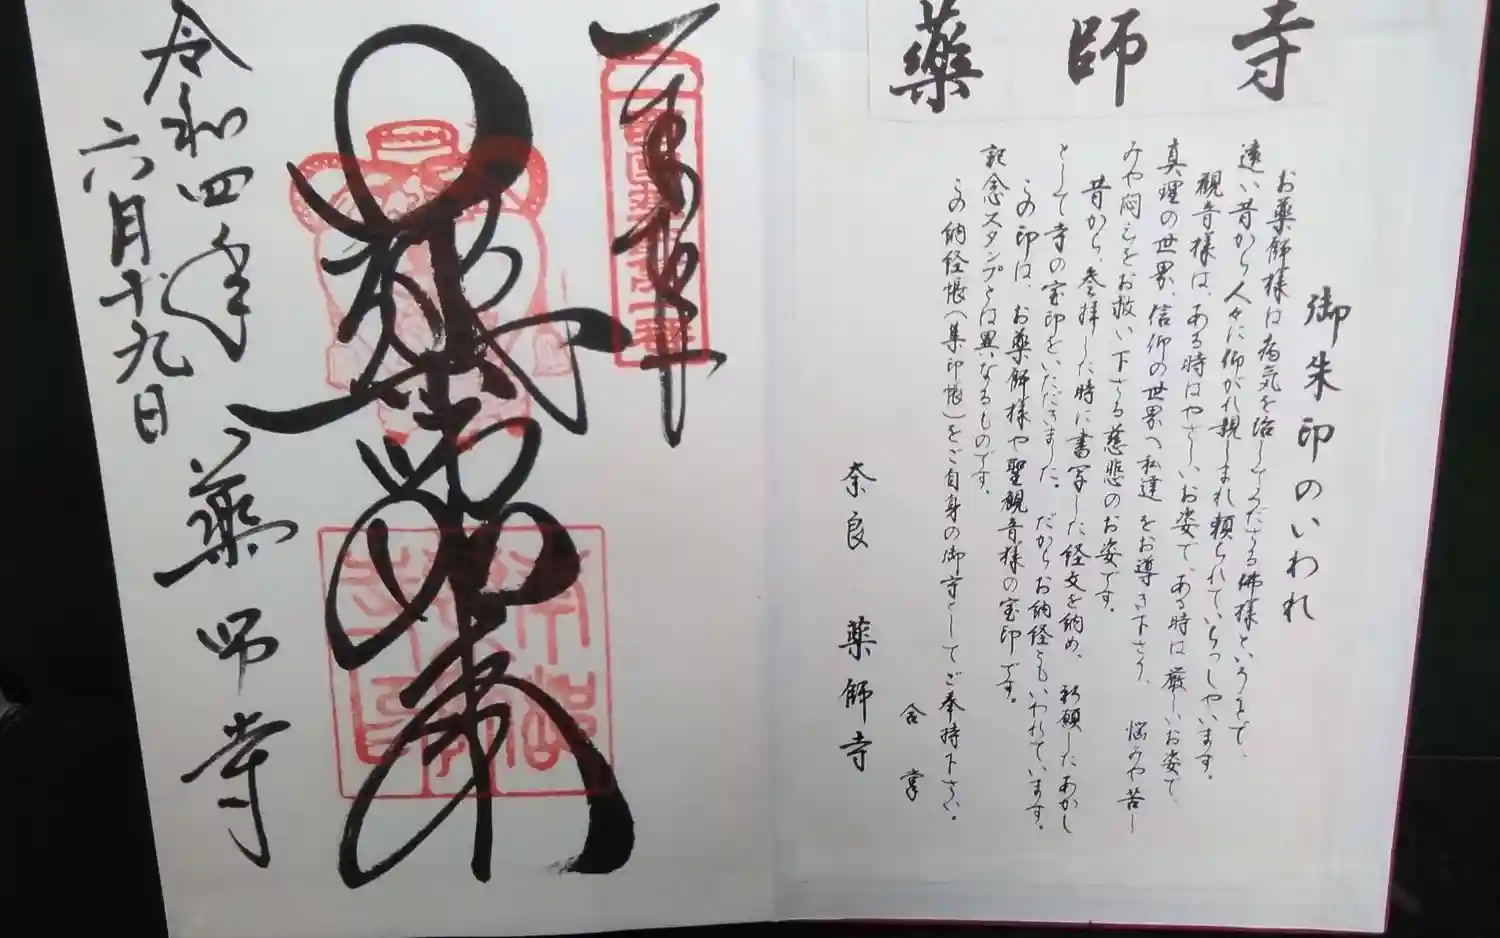 薬師寺
御朱印のいわれ
お薬師様は病気を治してくださる佛様というまで、
遠い昔から人々に仰がれ親しまれ頼られていらっしゃいます。
観音様は、ある時はやさしいお姿で、ある時は厳しいお姿で、
真理の世界、信仰の世界へ私達をお導き下さり、悩みや苦し
みや悶えをお救い下さる慈悲のお姿です。
昔から、参拝した時に書写した経文を納め、祈願したあかし
として寺の宝印をいただきました。だからお納経ともいわれています。
この印は、お薬師様や聖観音様の宝印です。
記念スタンプとは異なるものです。
この納経帳(集印帳)をご自身の御守としてご奉持下さい。
合掌
奈良 薬師寺
奉拝
薬師如来
令和四年
六月十九日
薬師寺